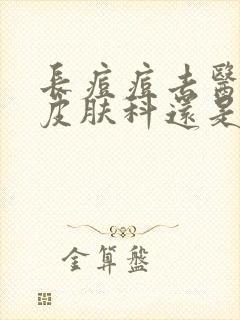 長痘痘去醫
皮膚科還是
金算盤